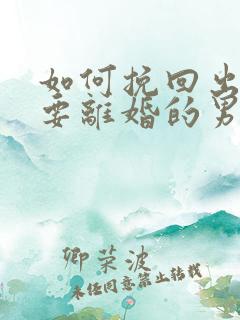 如何挽回出
要離婚的男
卿荣波
未经同意禁止转载